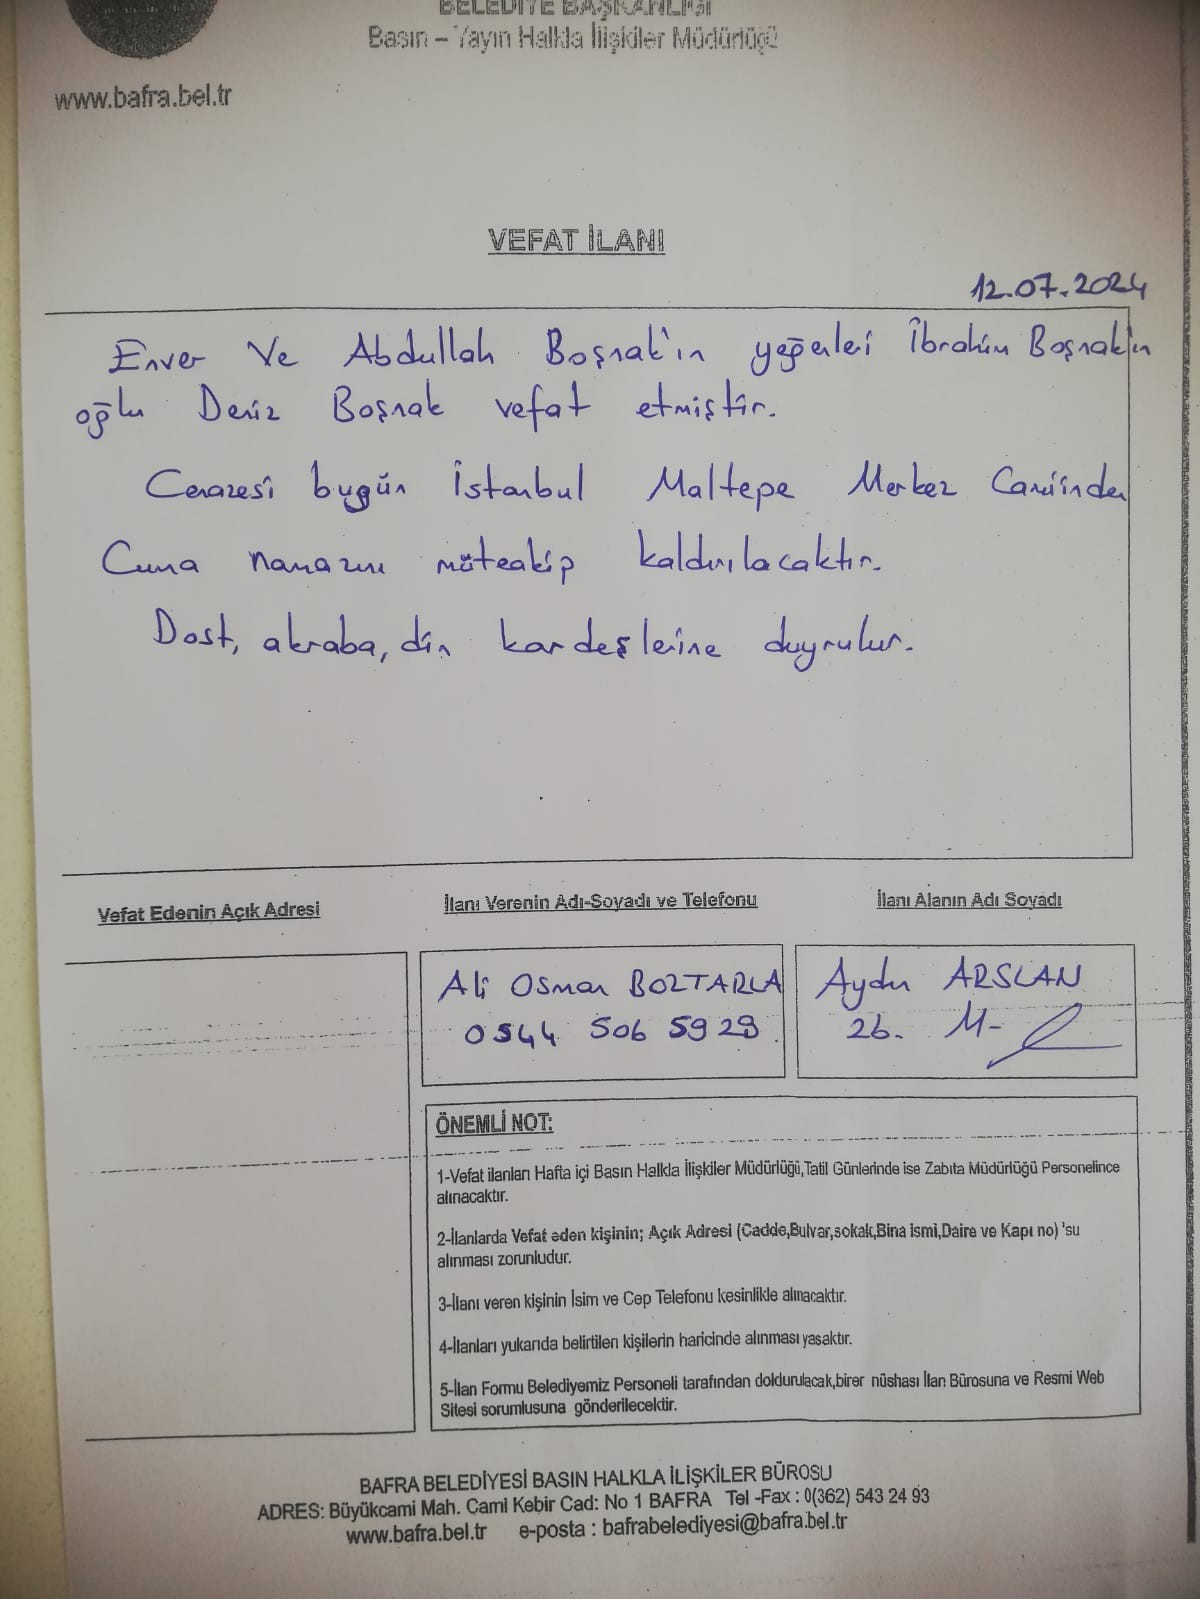 BELEDİYE BAŞKANLIĞI
Basın – Yayın Halkla İlişkiler Müdürlüğü
www.bafra.bel.tr
VEFAT İLANI
12.07.2024
Enver Ve Abdullah Boşnak'ın yeğenleri İbrahim Boşnak'ın
oğlu Deniz Boşnak vefat etmiştir.
Cenazesi bugün İstanbul Maltepe Merkez Camiinden
Cuma namazını müteakip kaldırılacaktır.
Dost, akraba, din kardeşlerine duyrulur.
Vefat Edenin Açık Adresi
İlanı Verenin Adı-Soyadı ve Telefonu
İlanı Alanın Adı Soyadı
Ali Osman BOZTARLA
0544 506 5929
Aydın ARSLAN
Zb. M-
ÖNEMLİ NOT:
1-Vefat ilanları Hafta içi Basın Halkla İlişkiler Müdürlüğü,Tatil Günlerinde ise Zabıta Müdürlüğü Personelince
alınacaktır.
2-İlanlarda Vefat eden kişinin; Açık Adresi (Cadde,Bulvar,sokak,Bina ismi,Daire ve Kapı no) 'su
alınması zorunludur.
3-İlanı veren kişinin İsim ve Cep Telefonu kesinlikle alınacaktır.
4-İlanları yukarıda belirtilen kişilerin haricinde alınması yasaktır.
5-İlan Formu Belediyemiz Personeli tarafından doldurulacak,birer nüshası İlan Bürosuna ve Resmi Web
Sitesi sorumlusuna gönderilecektir.
BAFRA BELEDİYESİ BASIN HALKLA İLİŞKİLER BÜROSU
ADRES: Büyükcami Mah. Cami Kebir Cad: No 1 BAFRA Tel -Fax : 0(362) 543 24 93
www.bafra.bel.tr e-posta : bafrabelediyesi@bafra.bel.tr